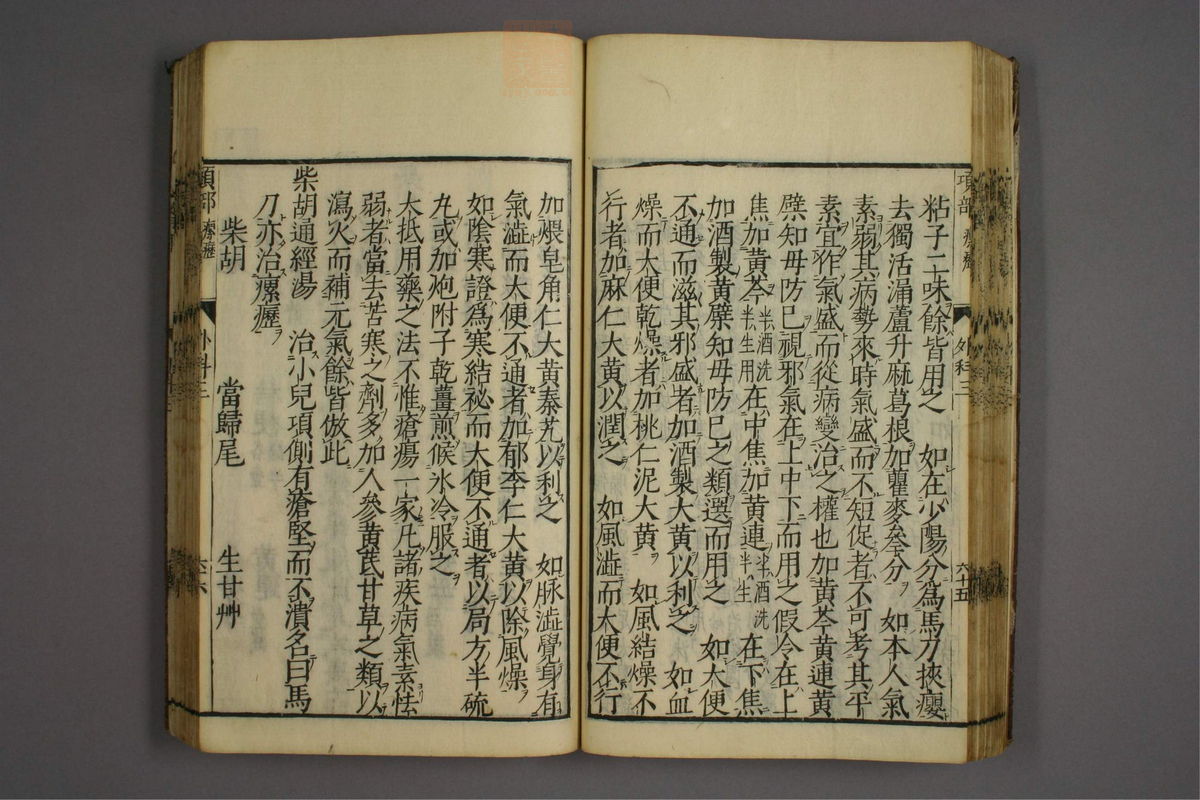 項部 瘰癧 外科三 六十五
粘子二味餘皆用之 如在少陽分為馬刀挾癭
去獨活漏蘆升麻葛根加瞿麥叄分 如本人氣
素弱其病勢來時氣盛而不短促者不可考其平
素宜作氣盛而從病變治之權也加黃芩黃連黃
檗知毋防巳視邪氣在上中下而用之假令在上
焦加黃芩半酒洗半生用在中焦加黃連半酒洗半生在下焦
加酒製黃檗知毋防巳之類選而用之 如大便
不通而滋其邪盛者加酒製大黃以利之 如血
燥而大便乾燥者加桃仁泥大黃 如風結燥不
行者加麻仁大黃以潤之 如風澁而大便不行
加煨皂角仁大黃秦艽以利之 如脉澁覺身有
氣澁而大便不通者加郁李仁大黃以除風燥
如陰寒證為寒結祕而大便不通者以局方半硫
丸或加炮附子乾薑煎候氷冷服之
大抵用藥之法不惟瘡瘍一家凡諸疾病氣素怯
弱者當去苦寒之劑多加人參黃芪甘草之類以
瀉火而補元氣餘皆倣此
柴胡通經湯 治小兒項側有瘡堅而不潰名曰馬
刀亦治瘰癧
柴胡 當歸尾 生甘艸
項部 瘰癧 外科三 六十六